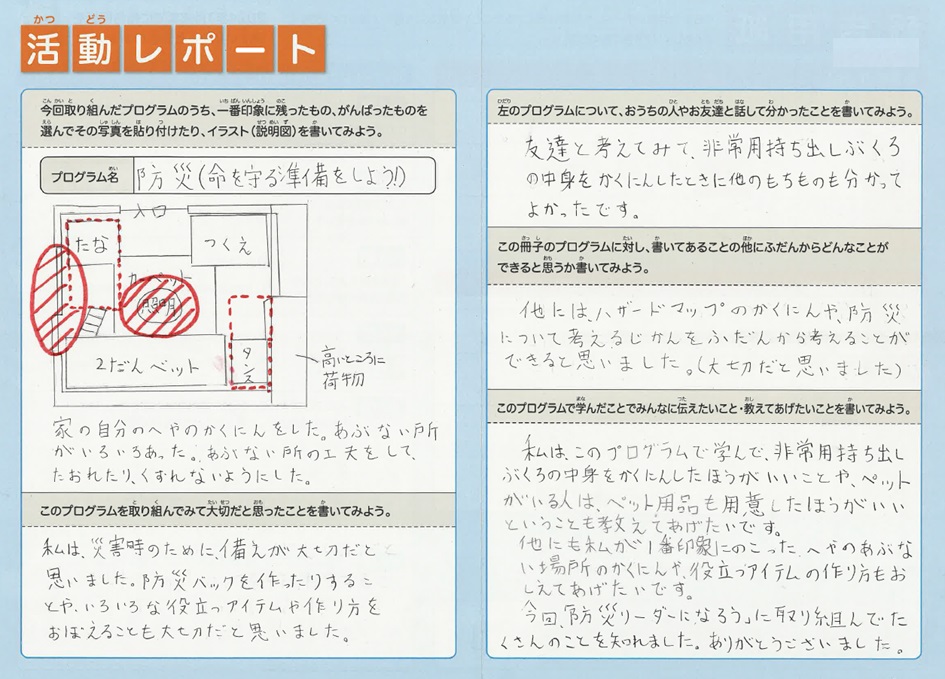 活動レポート
今回取り組んだプログラムのうち、一番印象に残ったもの、がんばったものを
選んでその写真を貼り付けたり、イラスト（説明図）を書いてみよう。
プログラム名 防災(命を守る準備をしよう!)
入口
たな
つくえ
カーペット
照明
タンス
2だんベット
高いところに
荷物
家の自分のへやのかくにんをした。あぶない所
がいろいろあった。あぶない所の工夫をして、
たおれたり、くずれないようにした。
このプログラムを取り組んでみて大切だと思ったことを書いてみよう。
私は、災害時のために、備えが大切だと
思いました。防災バックを作ったりするこ
とや、いろいろな役立つアイテムや作り方を
おぼえることも大切だと思いました。
左のプログラムについて、おうちの人やお友達と話して分かったことを書いてみよう。
友達と考えてみて、非常用持ち出しぶくろ
の中身をかくにんしたときに他のもちものも分かって
よかったです。
この冊子のプログラムに対し、書いてあることの他にふだんからどんなことが
できると思うか書いてみよう。
他には、ハザードマップのかくにんや、防災
について考えるじかんをふだんから考えることが
できると思いました。(大切だと思いました)
このプログラムで学んだことでみんなに伝えたいこと・教えてあげたいことを書いてみよう。
私は、このプログラムで学んで、非常用持ち出し
ぶくろの中身をかくにんしたほうがいいことや、ペット
がいる人は、ペット用品も用意したほうがいい
ということも教えてあげたいです。
他にも私が1番印象にのこった、へやのあぶな
い場所のかくにんや、役立つアイテムの作り方もお
しえてあげたいです。
今回、「防災リーダーになろう」に取り組んでた
くさんのことを知れました。ありがとうございました。